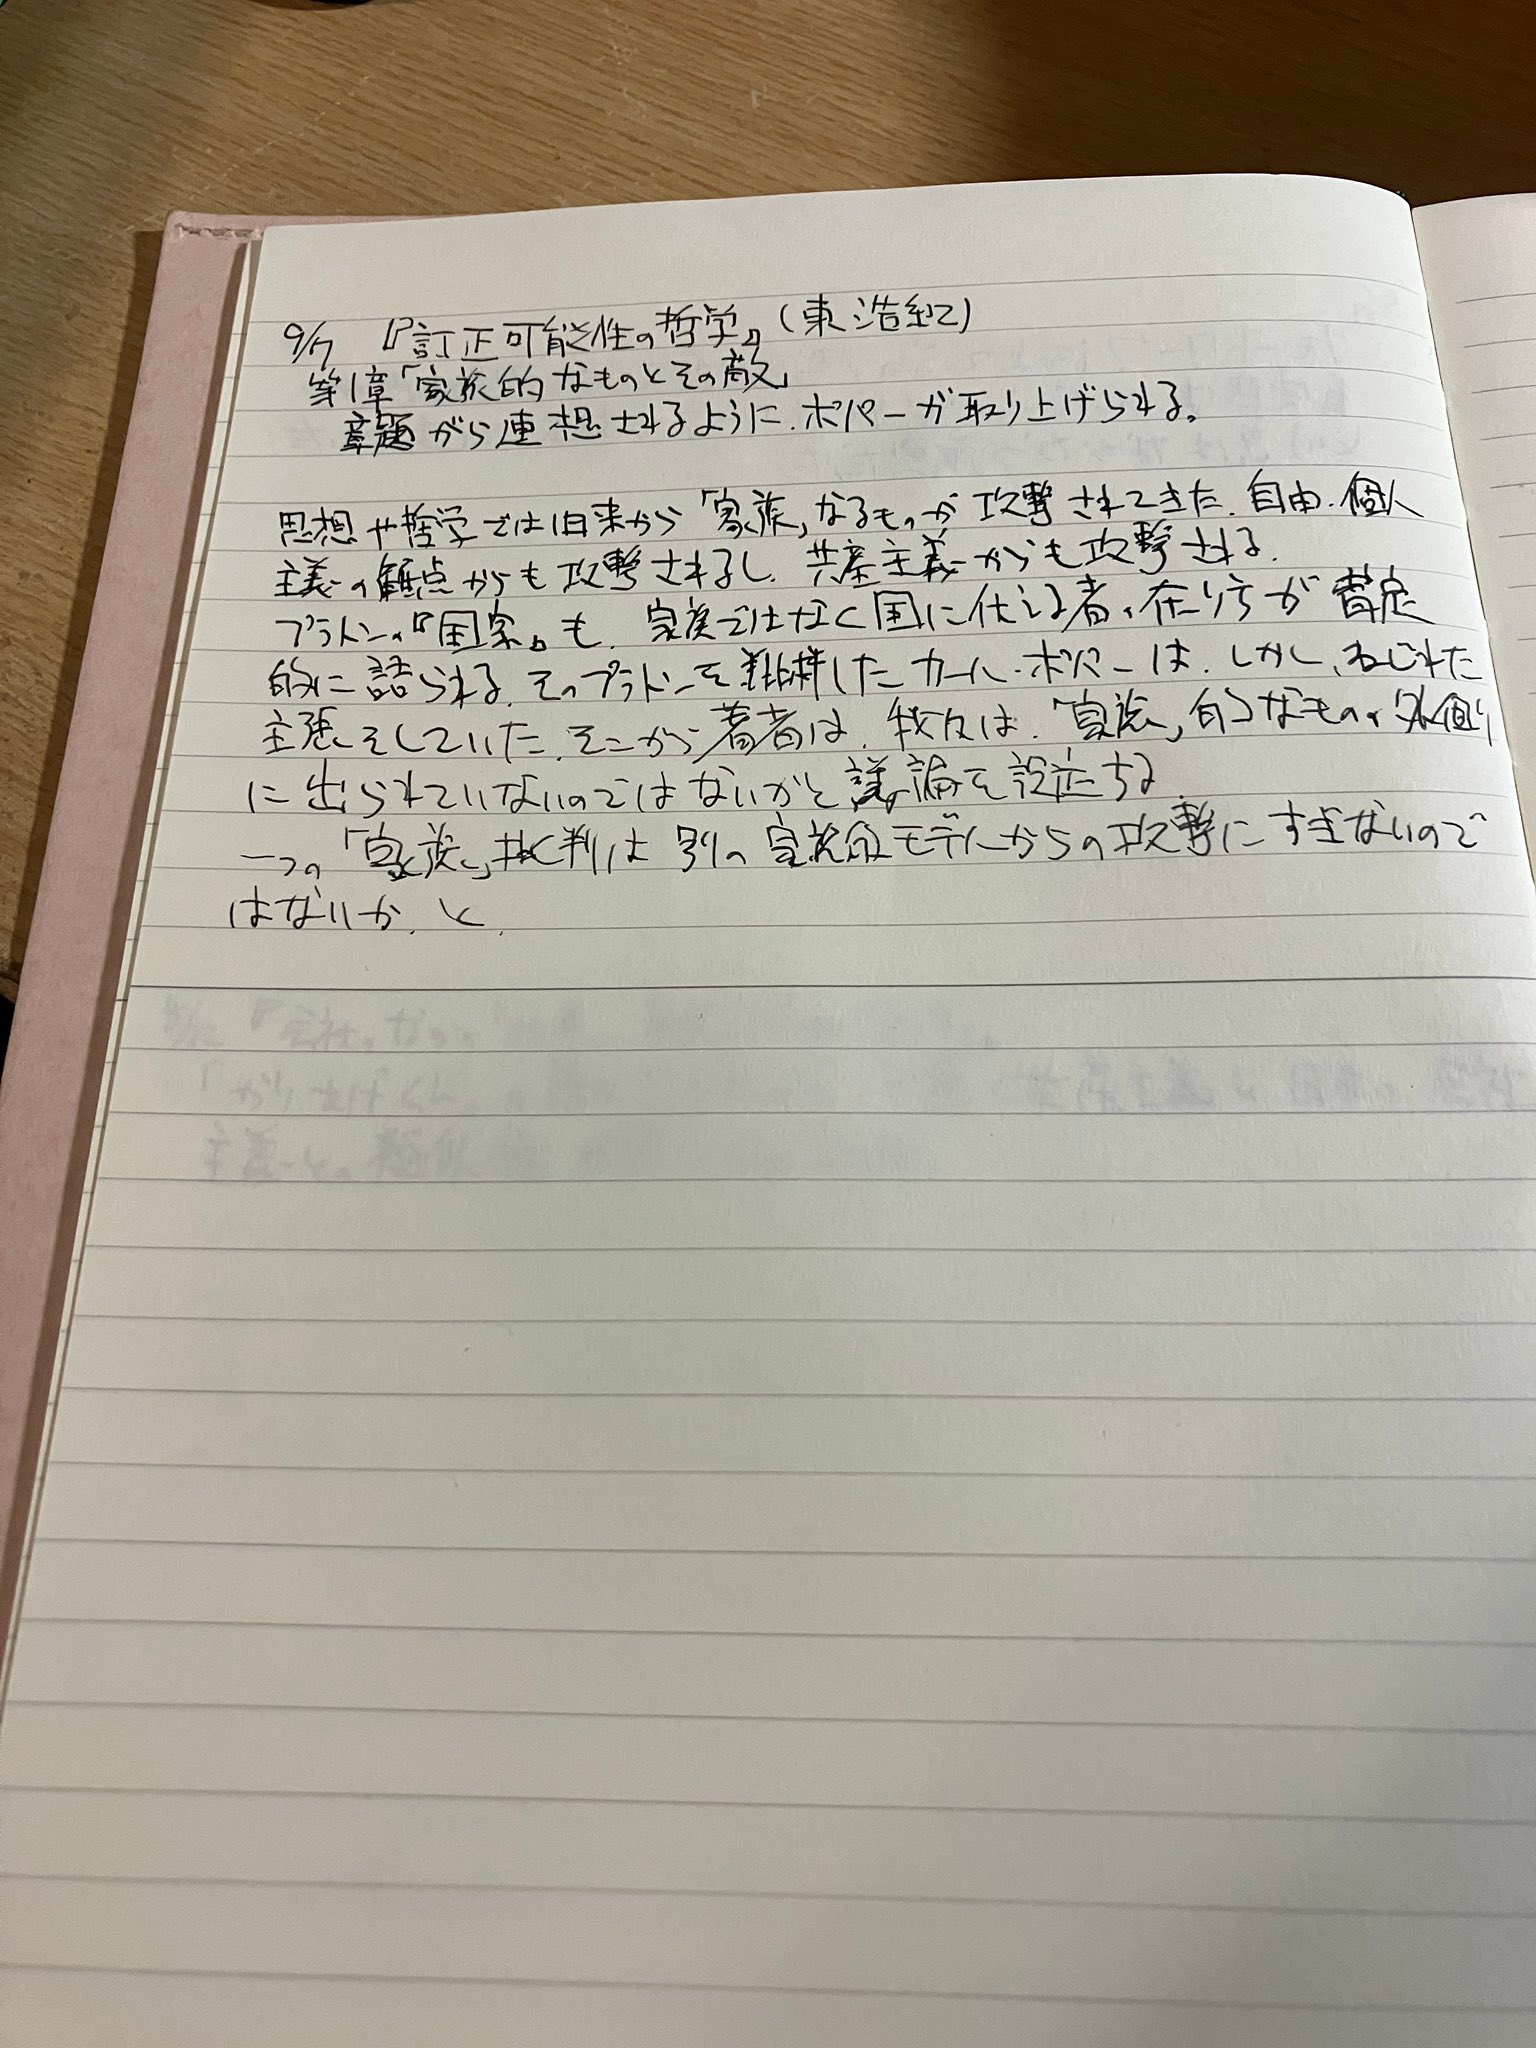 9/7 『訂正可能性の哲学』(東浩紀)
第1章「家族的なものとその敵」
章題から連想されるように、ポパーが取り上げられる。
思想や哲学では旧来から「家族」なるものが攻撃されてきた。自由・個人
主義の観点からも攻撃されるし、共産主義からも攻撃される。
プラトンの『国家』も、家族ではなく国に仕える者の在り方が肯定
的に語られる。そのプラトンを批判したカール・ポパーは、しかし、ねじれた
主張をしていた。そこから著者は、我々は、「家族」的なものの外側
に出られていないのではないかと議論を設定する。
一つの「家族」批判は別の家族的モデルからの攻撃にすぎないので
はないか、と。